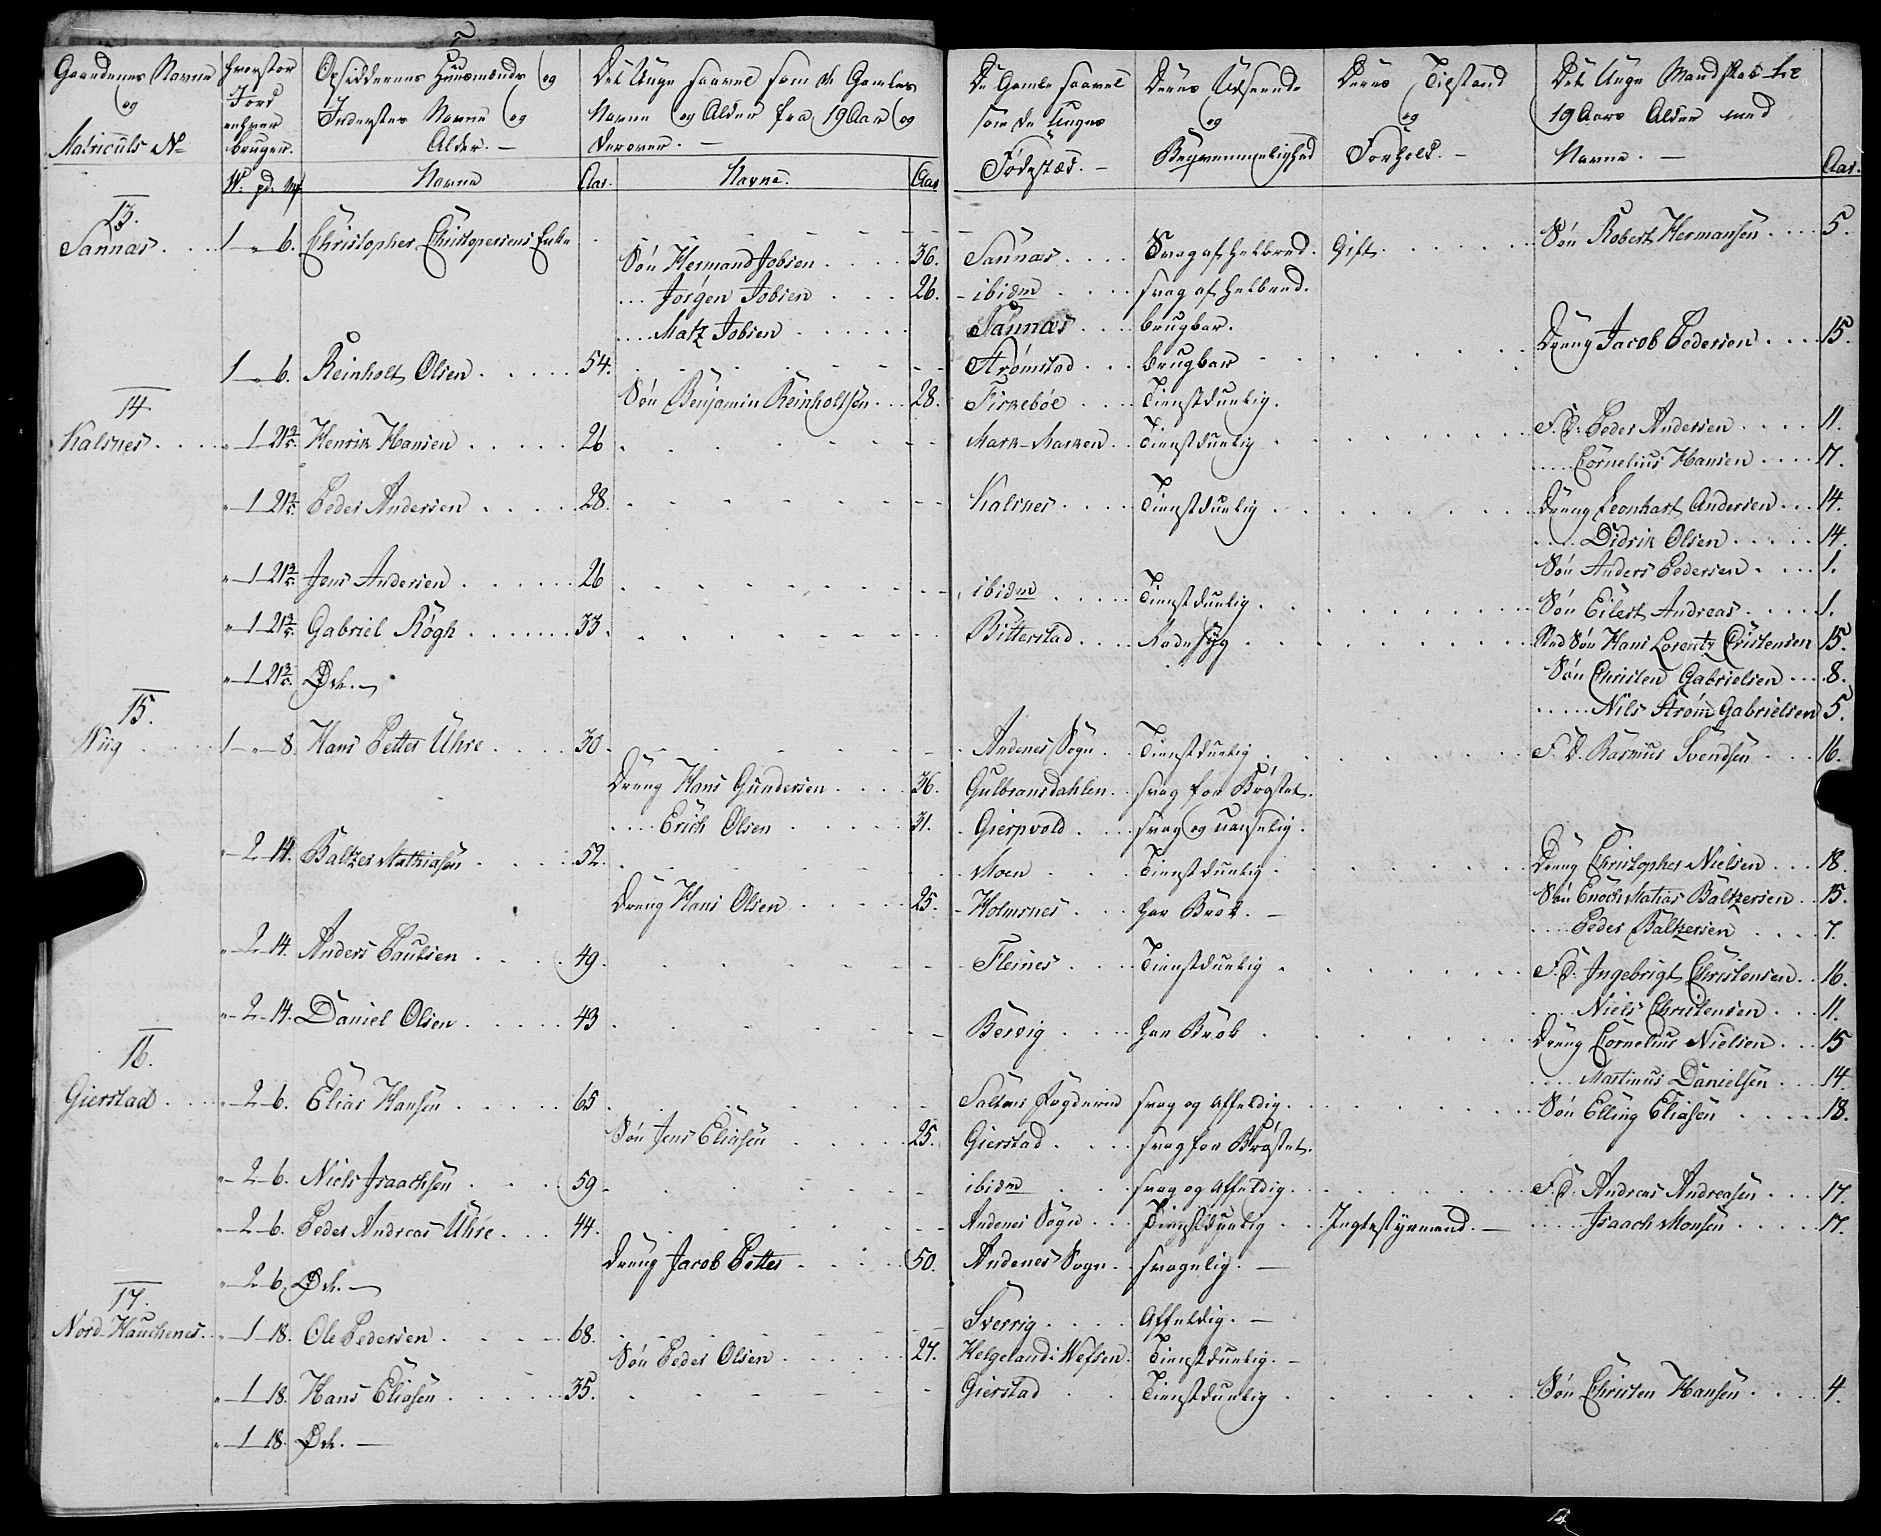 Gaardenes Navne og Matriculs No
hvorstor Jord enhver bruger.
W. pd. Mk
Opsiddernes Huusmænds og Inderster Navne og Alder. —
Navne Aar.
Det Unge saavel som de Gamles Navne og Alder fra 19 Aar og derover. —
Navne. Aar
De Gamle saavel som de Unges Fødestæd. —
Deres Udseende og Beqvemmelighed
Deres Tilstand og Forhold. —
Det Unge Mandskab til 19 Aars Alder med Navne. — Aar.
13.
Sannæs . . . 1 „ 6. Christopher Christopersens Enke . . . Søn Robert Hermansen . . . . 5.
Søn Hermand Jobsen . . . . 36. Sannæs . . . . Svag af Helbred. Gift
. . . Jørgen Jobsen . . . 26. ibidm . . . . svag af Helbred.
. . . . Matz Jobsen . . . . . . Sannæs . . . brugbar.
1 „ 6. Reinholt Olsen . . . . . 54. Strømstad . . . brugbar . . . Dreng Jacob Pedersen . . . . 15.
Søn Benjamin Reinholtsen . . . 28. Firkebøe . . . . Tienstduelig.
14.
Kalsnes . . . . „ 1 21 3/5. Henrik Hansen . . . . . 26 . . . Mark-Marken . . Tienstduelig . . . F. D. Peder Andersen . . . . 11.
. . . . . Cornelius Hansen . . . . 17.
„ 1 21 3/5. Peder Andersen . . . . 28. Kalsnes . . . . Tienstduelig . . . Dreng Leonhart Andersen . . . 14.
. . . . . Didrik Olsen . . . . . 14.
Søn Anders Pedersen . . . . 1.
„ 1 21 3/5. Jens Andersen . . . . . . 26 . . . ibidm . . . . . Tienstduelig . . . Søn Eilert Andreas . . . . . 1.
„ 1 21 3/5. Gabriel Røgh . . . . . . 33. Bitterstad . . . . Radesyg . . . Sted Søn Hans Lorentz Cristensen 15.
„ 1 21 3/5. Øde. —
Søn Christen Gabrielsen . . . . 8.
. . . . . Nils Strøm Gabrielsen 5.
15.
Niig . . . . 1 „ 8. Hans Petter Uhre . . . . 30. Andenes Sogn . . Tienstduelig . . . F. D. Rasmus Svendsen . . . . 16.
Dreng Hans Gundersen . . . . 36. Gulbransdahlen . . svag for Brøstet.
. . . . Erich Olsen . . . . . 31. Gierpvold . . . . svag og uanselig.
„ 2 14. Baltzer Mathiasen . . . . 52. Moen . . . . Tienstduelig . . . Dreng Christopher Nielsen . . . 18.
Dreng Hans Olsen . . . . . 25. Holmsnes . . . har Brok. — Søn Enoch Matias Baltzersen . . 15.
. . . . Peder Baltzersen . . . . 7.
„ 2 14. Anders Paulsen . . . . 49. Fleines . . . . Tienstduelig . . . F. D. Ingebrigt Christensen . . 16.
. . . . Niels Christensen . . . 11.
„ 2 14. Daniel Olsen . . . . . 43 . . . Bervig . . . . har Brok . . . Dreng Cornelius Nielsen . . . 15
. . . . Martinus Danielsen . . . . 14.
16.
Gierstad . . . „ 2 6. Elias Hansen . . . . . 65 . . . Saltens Fogderie svag og Affeldig . . . Søn Elling Eliasen . . . . . 18.
Søn Jens Eliasen . . . . . 25. Gierstad . . . . svag for Brøstet.
„ 2 6. Niels Isaachsen . . . . 59 . . . ibidm . . . svag og Affeldig . . . F. D. Andreas Andreasen . . . 17.
„ 2 6. Peder Andreas Uhre . . . 44. Andenes Sogn . . . Tienstduelig . . . Ingtestyrmand. — . . . . . Isaach Monsen . . . . . 17.
Dreng Jacob Petter . . . . . 50. Andenes Sogn . svagelig. —
„ 2 6. Øde. —
17.
Nord Hauckenes . . „ 1 18. Ole Pedersen . . . . . 68. Sverrig . . . . Affeldig. —
Søn Peder Olsen . . . . . 27. Helgeland: Wefsen. Tienstduelig. —
„ 1 18. Hans Eliasen . . . . . 35. Gierstad . . . Tienstduelig . . . Søn Christen Hansen . . . . 4.
„ 1 18. Øde. —